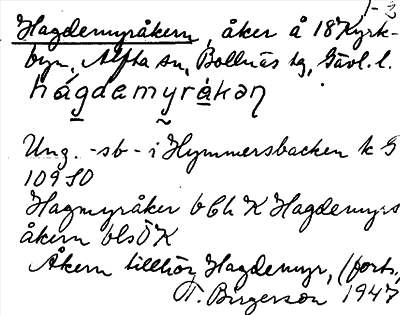 1-2
Hagdemyråkern, åker å 18 Kyrk-
byn, Alfta sn, Bollnäs tg, Gävl. l.
hágdemyrákəɳ
Ung. -sb- i Hymmersbacken k G
10950
Hagmyråker bbh K Hagdemyrs
åkern blsÖK
Åkern tillhör Hagdemyr, (forts.,
T. Birgerson 1947